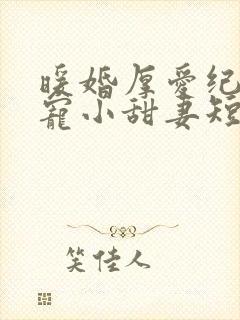 暖婚厚爱纪
宠小甜妻短
笑佳人